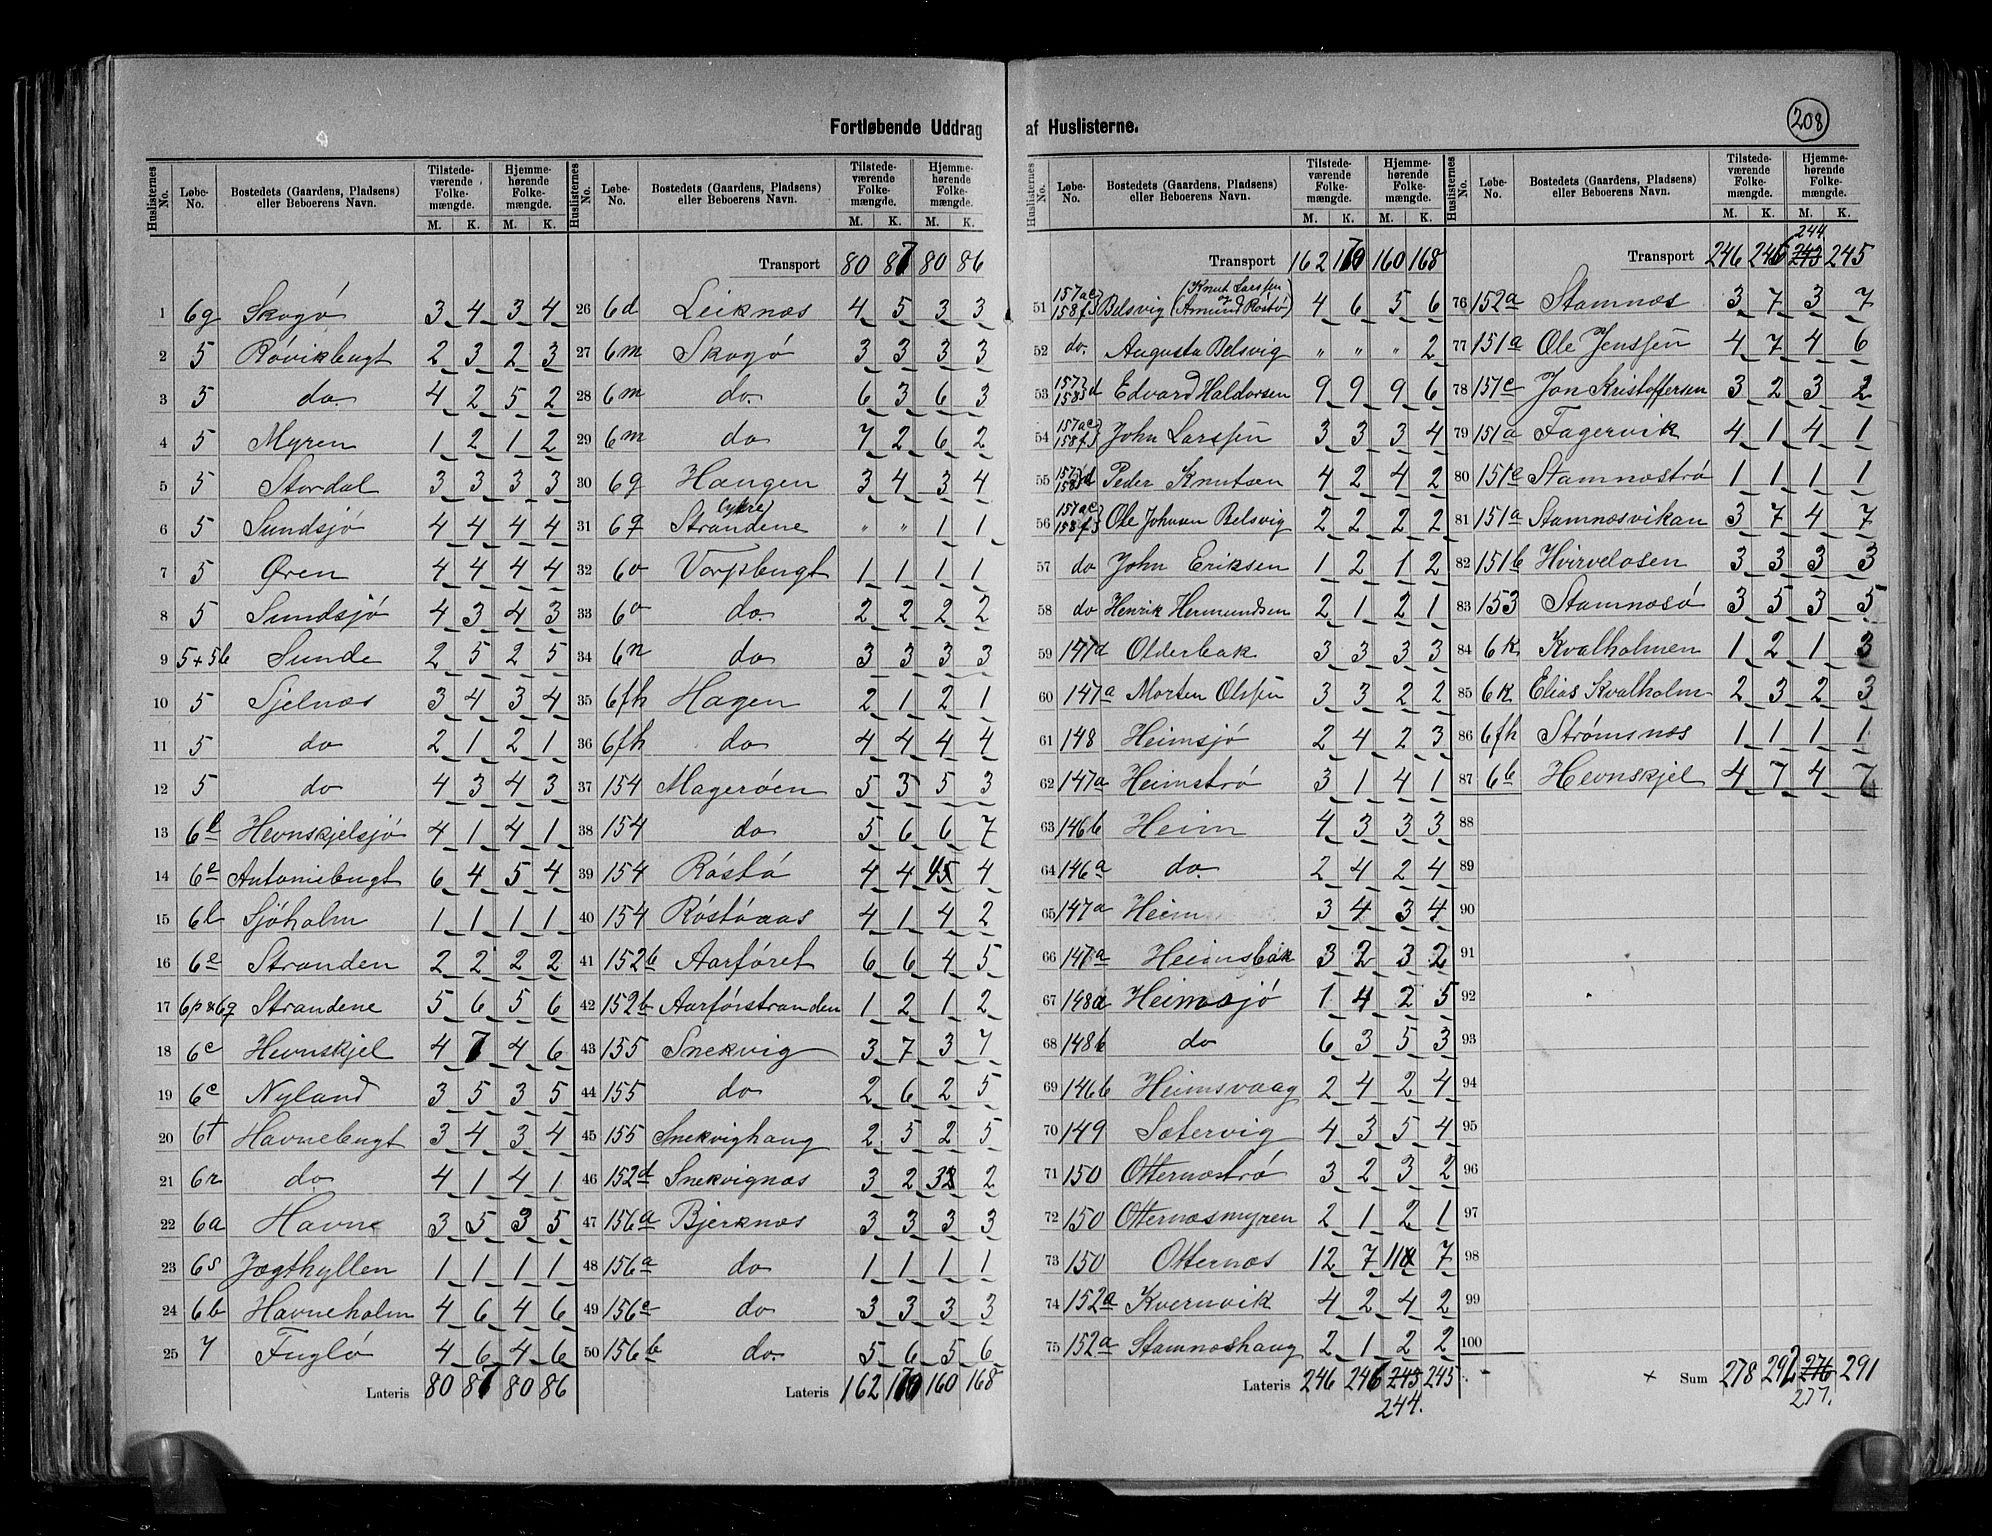 Fortløbende Uddrag af Huslisterne.
208
Huslisternes No. Løbe-No. Bostedets (Gaardens, Pladsen) eller Beboerens Navn. Tilstedeværende Folkemængde. M. K. Hjemmehørende Folkemængde. M. K.
1 6g Skogö 3 4 3 4
2 5 Rövikbugt 2 3 2 3
3 5 do. 4 2 5 2
4 5 Myren 1 2 1 2
5 5 Stordal 3 3 3 3
6 5 Sundsjö 4 4 4 4
7 5 Øren 4 4 4 4
8 5 Sundsjö 4 3 4 3
9 5+5b Sunde 2 5 2 5
10 5 Sjelnæs 3 4 3 4
11 5 do 2 1 2 1
12 5 do 4 3 4 3
13 6l Hevnskjelsjö 4 1 4 1
14 6e Antonibugt 6 4 5 4
15 6l Sjöholm 1 1 1 1
16 6e Stranden 2 2 2 2
17 6p&6q Strandene 5 6 5 6
18 6c Hevnskjel 4 7 4 6
19 6c Nyland 3 5 3 5
20 6t Havnebugt 3 4 3 4
21 6r do 4 1 4 1
22 6a Havne 3 5 3 5
23 6s Jægthyllen 1 1 1 1
24 6b Havneholm 4 6 4 6
25 7 Fuglö 4 6 4 6
Lateris 80 87 80 86
Huslisternes No. Løbe-No. Bostedets (Gaardens, Pladsen) eller Beboerens Navn. Tilstedeværende Folkemængde. M. K. Hjemmehørende Folkemængde. M. K.
Transport 80 87 80 86
26 6d Leiknæs 4 5 3 3
27 6m Skogö 3 3 3 3
28 6m do. 6 3 6 3
29 6m do 7 2 6 2
30 6g Haugen 3 4 3 4
31 6q Strandene Cytre) " " 1 1
32 6o Vorpbugt 1 1 1 1
33 6o do. 2 2 2 2
34 6n do 3 3 3 3
35 6fh Hagen 2 1 2 1
36 6fh do 4 4 4 4
37 154 Mageröen 5 3 5 3
38 154 do 5 6 6 7
39 154 Röstö 4 4 45 4
40 154 Röstöaas 4 1 4 2
41 152b Aarföret 6 6 4 5
42 152b Aarförstranden 1 2 1 2
43 155 Snekvig 3 7 3 7
44 155 do 2 6 2 5
45 155 Snekvighaug 2 5 2 5
46 152d Snekvignæs 3 2 32 2
47 156a Bjerknæs 3 3 3 3
48 156a do 1 1 1 1
49 156c do 3 3 3 3
50 156b do. 5 6 5 6
Lateris 162 170 160 168
Huslisternes No. Løbe-No. Bostedets (Gaardens, Pladsen) eller Beboerens Navn. Tilstedeværende Folkemængde. M. K. Hjemmehørende Folkemængde. M. K.
Transport 162 170 160 168
51 157ac 158f Belsvig (Knut Larssen og Amund Röstö) 4 6 5 6
52 do. Augusta Belsvig " " " 2
53 157 158 d Edvard Haldorsen 9 9 9 6
54 157ac 158f John Larssen 3 3 3 4
55 157 158 d Peder Knutsen 4 2 4 2
56 157ac 158f Ole Johnsen Belsvig 2 2 2 2
57 do John Eriksen 1 2 1 2
58 do Henrik Hermundsen 2 1 2 1
59 147d Olderbak 3 3 3 3
60 147a Morten Olssen 3 3 2 2
61 148 Heimsjö 2 4 2 3
62 147a Heimströ 3 1 4 1
63 146b Heim 4 3 3 3
64 146a do. 2 4 2 4
65 147a Heim 3 4 3 4
66 147a Heimsbak 3 2 3 2
67 148a Heimsjö 1 4 2 5
68 148b do 6 3 5 3
69 146b Heimsvaag 2 4 2 4
70 149 Sætervig 4 3 5 4
71 150 Otternæströ 3 2 3 2
72 150 Otternæsmyren 2 1 2 1
73 150 Otternæs 12 7 11 7
74 152a Kvernvik 4 2 4 2
75 152a Stamnæshaug 2 1 2 2
Lateris 246 246 243 245
244.
Huslisternes No. Løbe-No. Bostedets (Gaardens, Pladsen) eller Beboerens Navn. Tilstedeværende Folkemængde. M. K. Hjemmehørende Folkemængde. M. K.
244
Transport 246 246 243 245
76 152a Stamnæs 3 7 3 7
77 151a Ole Jenssen 4 7 4 6
78 151c Jon Kristoffersen 3 2 3 2
79 151a Fagervik 4 1 4 1
80 151c Stamnæströ 1 1 1 1
81 151a Stamnæsvikan 3 7 4 7
82 151b Hvirvelosen 3 3 3 3
83 153 Stamnæsö 3 5 3 5
84 6k Kvalholmen 1 2 1 3
85 6k Elias Kvalholm 2 3 2 3
86 6fh Strömsnæs 1 1 1 1
87 6b Hevnskjel 4 7 4 7
88
89
90
91
92
93
94
95
96
97
98
99
100
× Sum 278 292 276 291
277.